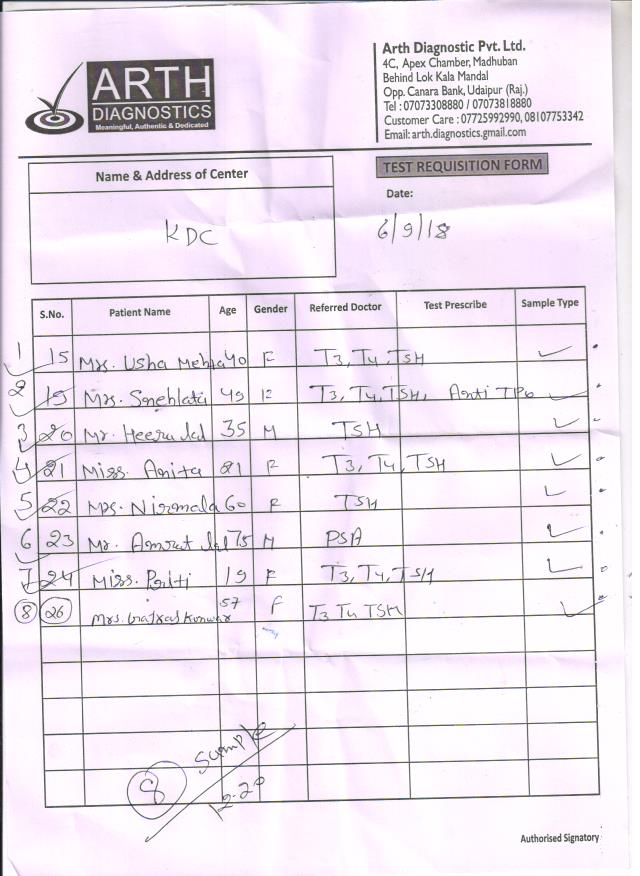 ARTH
DIAGNOSTICS
Meaningful, Authentic & Dedicated
Arth Diagnostic Pvt. Ltd.
4C, Apex Chamber, Madhuban
Behind Lok Kala Mandal
Opp. Canara Bank, Udaipur (Raj.)
Tel : 07073308880 / 07073818880
Customer Care : 07725992990, 08107753342
Email: arth.diagnostics.gmail.com
TEST REQUISITION FORM
Name & Address of Center
Date:
KDC
6/9/18
S.No. Patient Name Age Gender Referred Doctor Test Prescribe Sample Type
1 15 Mrs. Usha Mehta 40 F T3, T4, TSH
2 19 Mrs. Snehlata 49 F T3, T4, TSH, Anti TPO
3 20 Mr. Heera lal 35 M TSH
4 21 Miss. Anita 21 F T3, T4, TSH
5 22 Mrs. Nirmala 60 F TSH
6 23 Mr. Amrut lal 75 M PSA
7 24 Miss. Priti 19 F T3, T4, TSH
8 26 Mrs. Kunwar 57 F T3 T4 TSH
8 Sample
12-20
Authorised Signatory